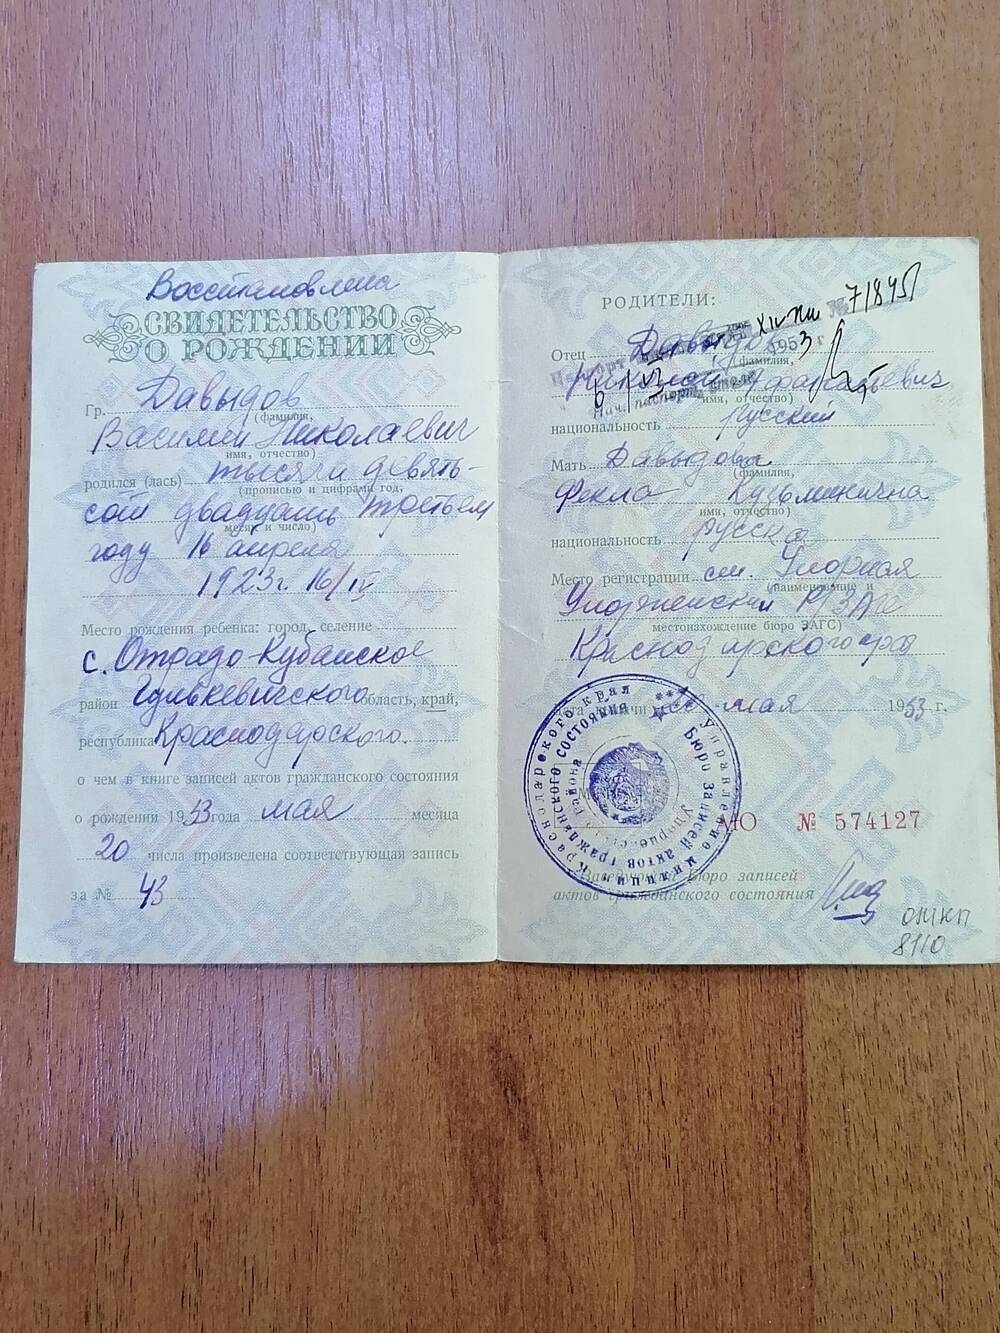 Восстановлена
СВИДЕТЕЛЬСТВО
О РОЖДЕНИИ
Гр. Давыдов
(фамилия,
Василий Николаевич
имя, отчество)
родился (лась) тысяча девять-
(прописью и цифрами год,
сот двадцать третьем
месяц и число)
году 16 апреля
1923 г. 16/IV
Место рождения ребенка: город, селение
с. Отрадо-Кубанское
район Гулькевичского область, край,
республика Краснодарского.
о чем в книге записей актов гражданского состояния
о рождении 1953 года мая месяца
20 числа произведена соответствующая запись
за № 43
РОДИТЕЛИ:
Отец Давыдов
(фамилия,
Николай
имя, отчество)
национальность русский
Мать Давыдова
(фамилия,
Фекла Кузьминична
имя, отчество)
национальность русская
Место регистрации ст. Упорная
(наименование и
Упорненский РЗАГС
местонахождение бюро ЗАГС)
Краснодарского края
Дата выдачи мая 1953 г.
АЮ № 574127
Заведующий Бюро записей
актов гражданского состояния
Паспорт XIV-ПШ № 718451
1953 г
Нач. паспорт. стола
Управление милиции Краснодарского края
Бюро записей актов гражданского состояния
ОЖКП
8110